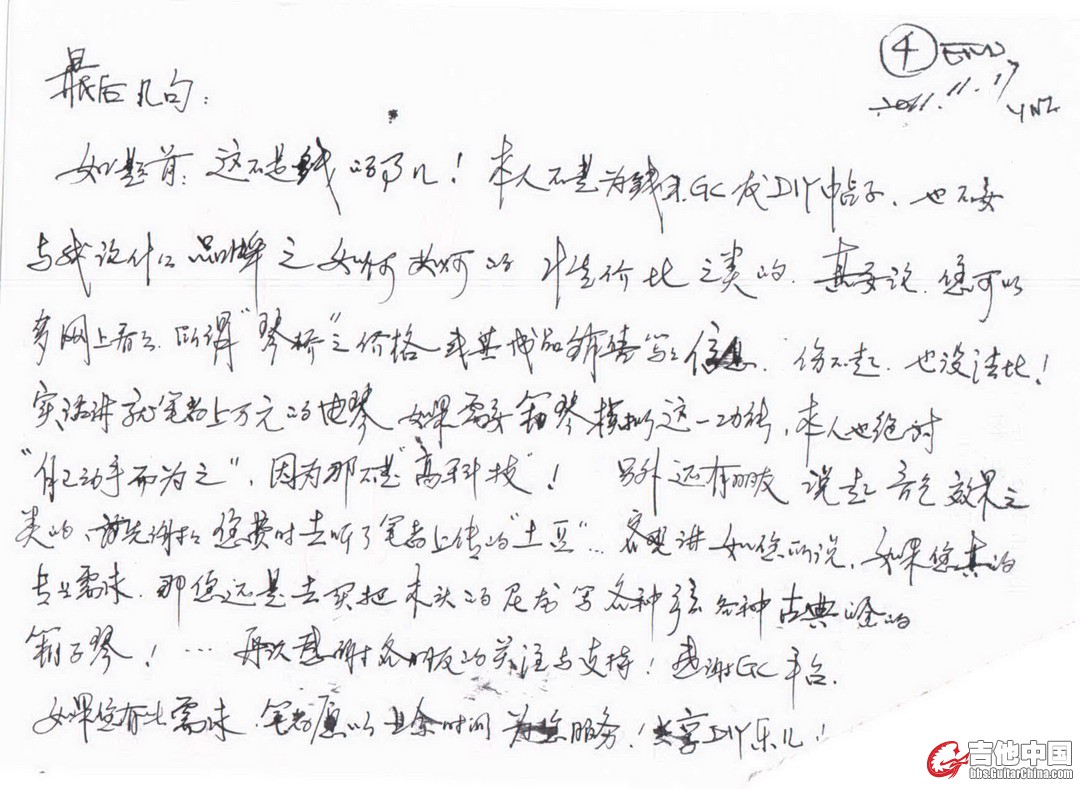 ④ END
2011.11.17
YNZ
最后几句：
如题首：这不是钱的事儿！本人不是为钱来GC发DIY中帖子、也不要
与我说什么品牌之如何如何的性价比之类的.其要说.您可以
多网上看看."琴桥"之价格或其成品销售等信息.伤不起.也没法比！
实话讲就笔者上万元的电琴如果需要钢琴模拟这一功能,本人也绝对
"自己动手而为之",因为那不是"高科技"！另外还有朋友说起音色效果之
类的、首先谢谢您费时去听了笔者上传的"土豆"…客观讲如您所说,如果您真的
专业需求.那您还是去买把木头的尼龙等各种弦各种古典的
箱子琴！…再次感谢各朋友的关注与支持！感谢GC平台.
如果您有此需求.笔者愿以业余时间为您服务！共享DIY乐儿！
吉他中国
bbs.GuitarChina.com